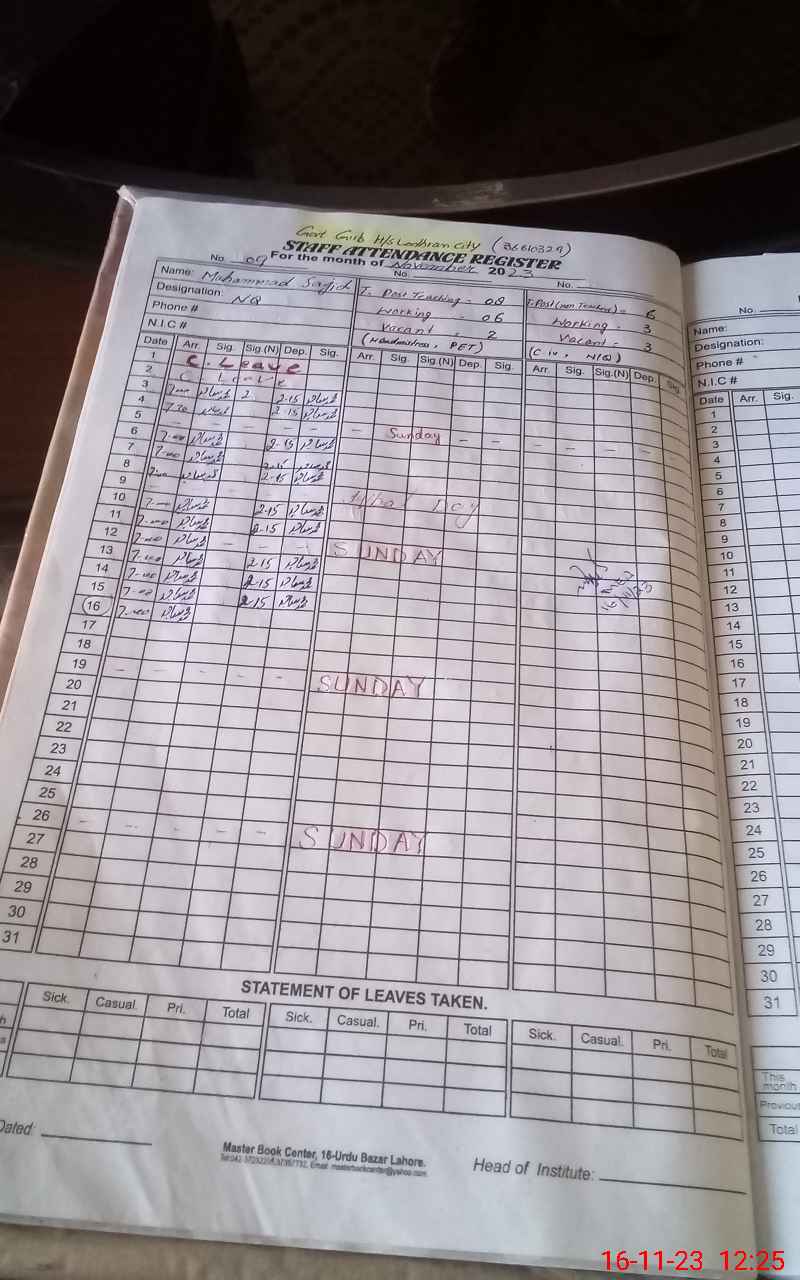 Govt Girls H/S Lodhran City (36610329)
STAFF ATTENDANCE REGISTER
No. 09 For the month of November 2023
No. No.
Name: Muhammad Sajid
Designation: NQ
Phone #
N.I.C #
T. Post Teaching = 08
Working = 06
Vacant = 2
(Headmistress, PET)
T. Post (non Teaching) = 6
Working = 3
Vacant = 3
(C IV, N/Q)
Date Arr. Sig. Sig.(N) Dep. Sig. Arr. Sig. Sig.(N) Dep. Sig. Arr. Sig. Sig.(N) Dep. Sig.
1 C. Leave
2 C Leave
3 7-00 2-15
4 7-30 2-15
5 - - - - - - Sunday - - - - - - -
6 7-00 2-15
7 7-00
8 2-15
9 2-15
10 7-00 2-15
11 7-00 2-15
12 - - - SUNDAY
13 7-00 2-15
14 7-00 2-15
15 7-00 2-15
16 7-00
16/11/23
17
18
19 - - - - - SUNDAY
20
21
22
23
24
25
26 - - - - - SUNDAY
27
28
29
30
31
STATEMENT OF LEAVES TAKEN.
Sick. Casual. Pri. Total Sick. Casual. Pri. Total Sick. Casual. Pri. Total
Dated:
Master Book Center, 16-Urdu Bazar Lahore.
Head of Institute:
No.
Name:
Designation:
Phone #
N.I.C #
Date Arr. Sig.
1
2
3
4
5
6
7
8
9
10
11
12
13
14
15
16
17
18
19
20
21
22
23
24
25
26
27
28
29
30
31
This
month
Previous
Total
16-11-23 12:25